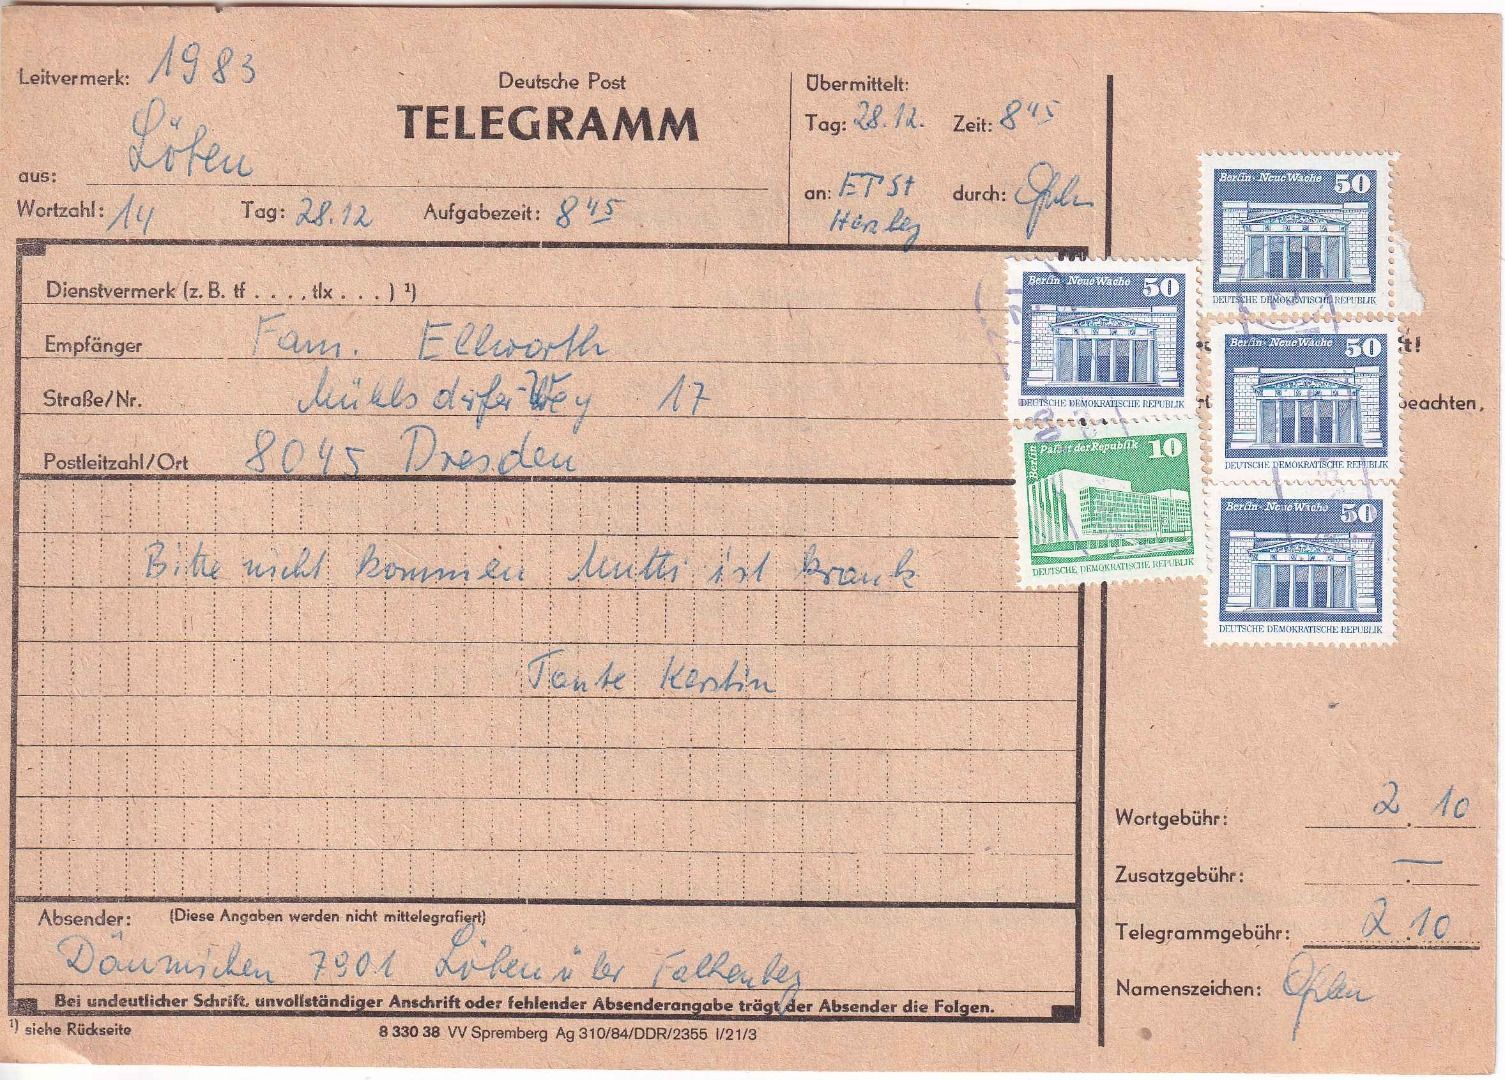 Leitvermerk: 1983
Deutsche Post
TELEGRAMM
aus: Löben
Wortzahl: 14 Tag: 28.12 Aufgabezeit: 8 45
Übermittelt:
Tag: 28.12. Zeit: 8 45
an: ETSt durch:
Herzberg
Dienstvermerk (z. B. tf . . . , tlx . . . ) ¹)
Empfänger Fam. Ellworth
Straße/Nr. Mühlsdorfer Weg 17
Postleitzahl/Ort 8045 Dresden
Bitte nicht kommen Mutti ist krank
Tante Kerstin
Absender: (Diese Angaben werden nicht mittelegrafiert)
Däumichen 7901 Löben über Falkenberg
Bei undeutlicher Schrift, unvollständiger Anschrift oder fehlender Absenderangabe trägt der Absender die Folgen.
¹) siehe Rückseite
8 330 38 VV Spremberg Ag 310/84/DDR/2355 I/21/3
Berlin · Neue Wache 50
DEUTSCHE DEMOKRATISCHE REPUBLIK
Berlin · Neue Wache 50
DEUTSCHE DEMOKRATISCHE REPUBLIK
Berlin · Neue Wache 50
DEUTSCHE DEMOKRATISCHE REPUBLIK
t!
beachten,
Berlin Palast der Republik 10
DEUTSCHE DEMOKRATISCHE REPUBLIK
Berlin · Neue Wache 50
DEUTSCHE DEMOKRATISCHE REPUBLIK
Wortgebühr: 2.10
Zusatzgebühr: —.
Telegrammgebühr: 2.10
Namenszeichen: